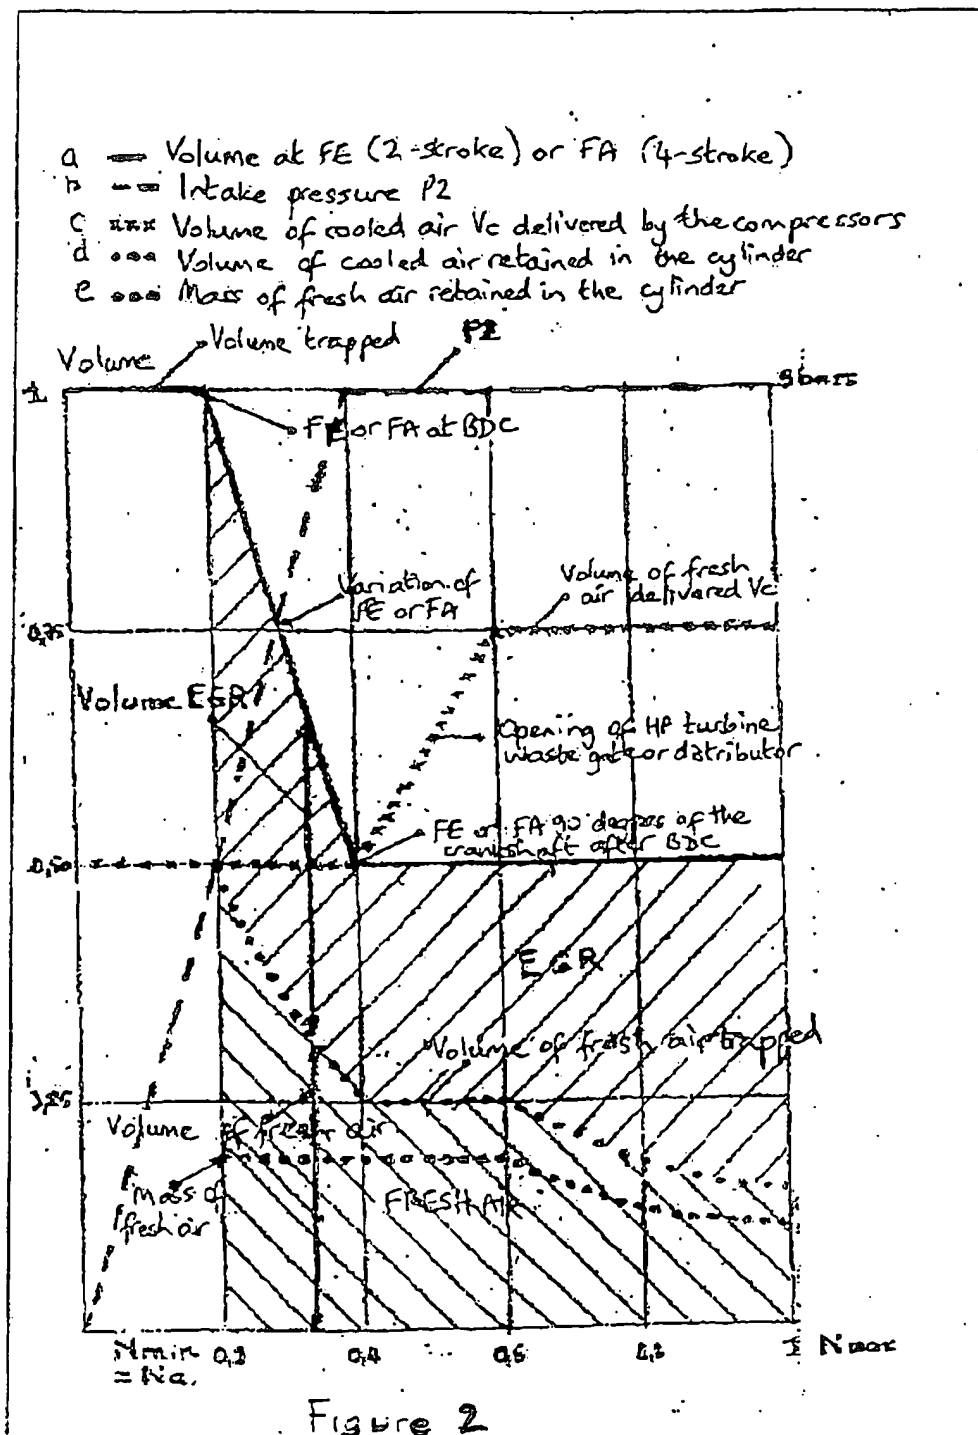 a Volume at FE (2-stroke) or FA (4-stroke)
b Intake pressure P2
c xxx Volume of cooled air Vc delivered by the compressors
d ooo Volume of cooled air retained in the cylinder
e ooo Mass of fresh air retained in the cylinder
Volume trapped
P2
Volume
1
3bars
FE or FA at BDC
Variation of
FE or FA
Volume of fresh
air delivered Vc
0,75
Volume EGR
Opening of HP turbine
waste gate or distributor
FE or FA 90 degrees of the
crankshaft after BDC
0,50
EGR
Volume of fresh air trapped
Volume of fresh air
Mass of
fresh air
FRESH AIR
Nmin
= Na.
0,2
0,4
1
Nmax
Figure 2